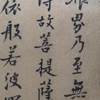 界乃至無
得故菩提薩
依般若波